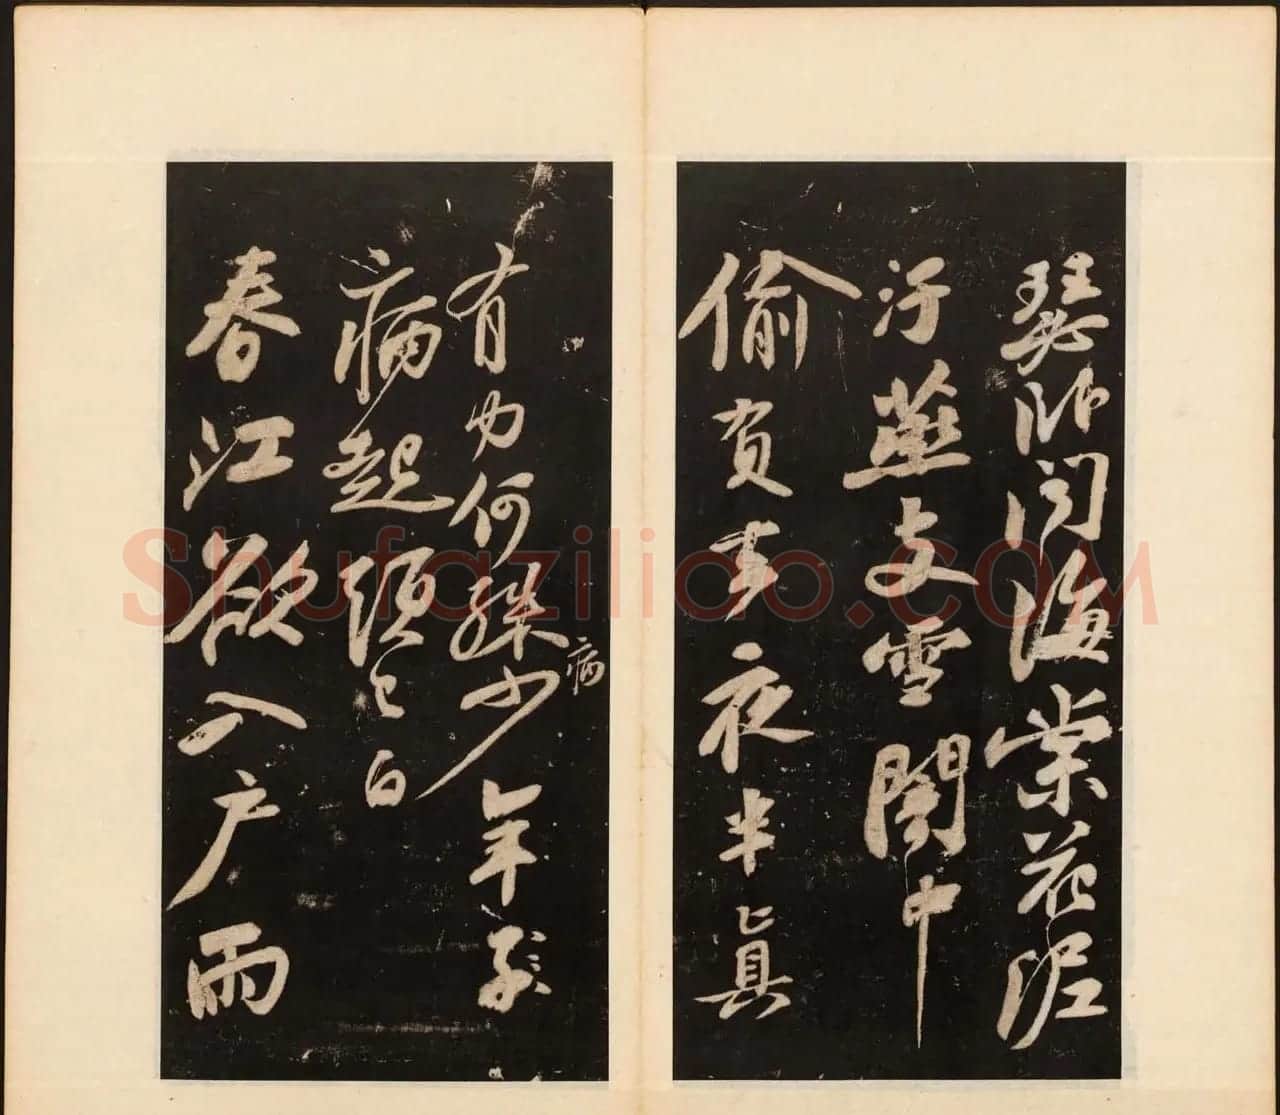 瑟臥聞海棠花泥
汙燕支雪闇中
偷負去夜半真
有力何殊病少年子
病起頭已白
春江欲入户雨
Shufaziliao.COM